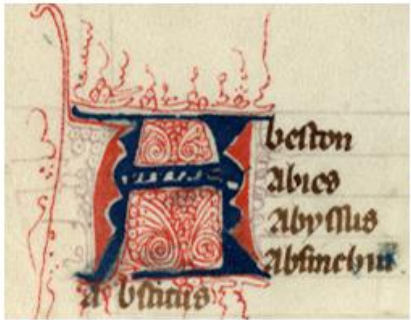 Abeston
Abies
Abyssus
Absinthiu
Absticus